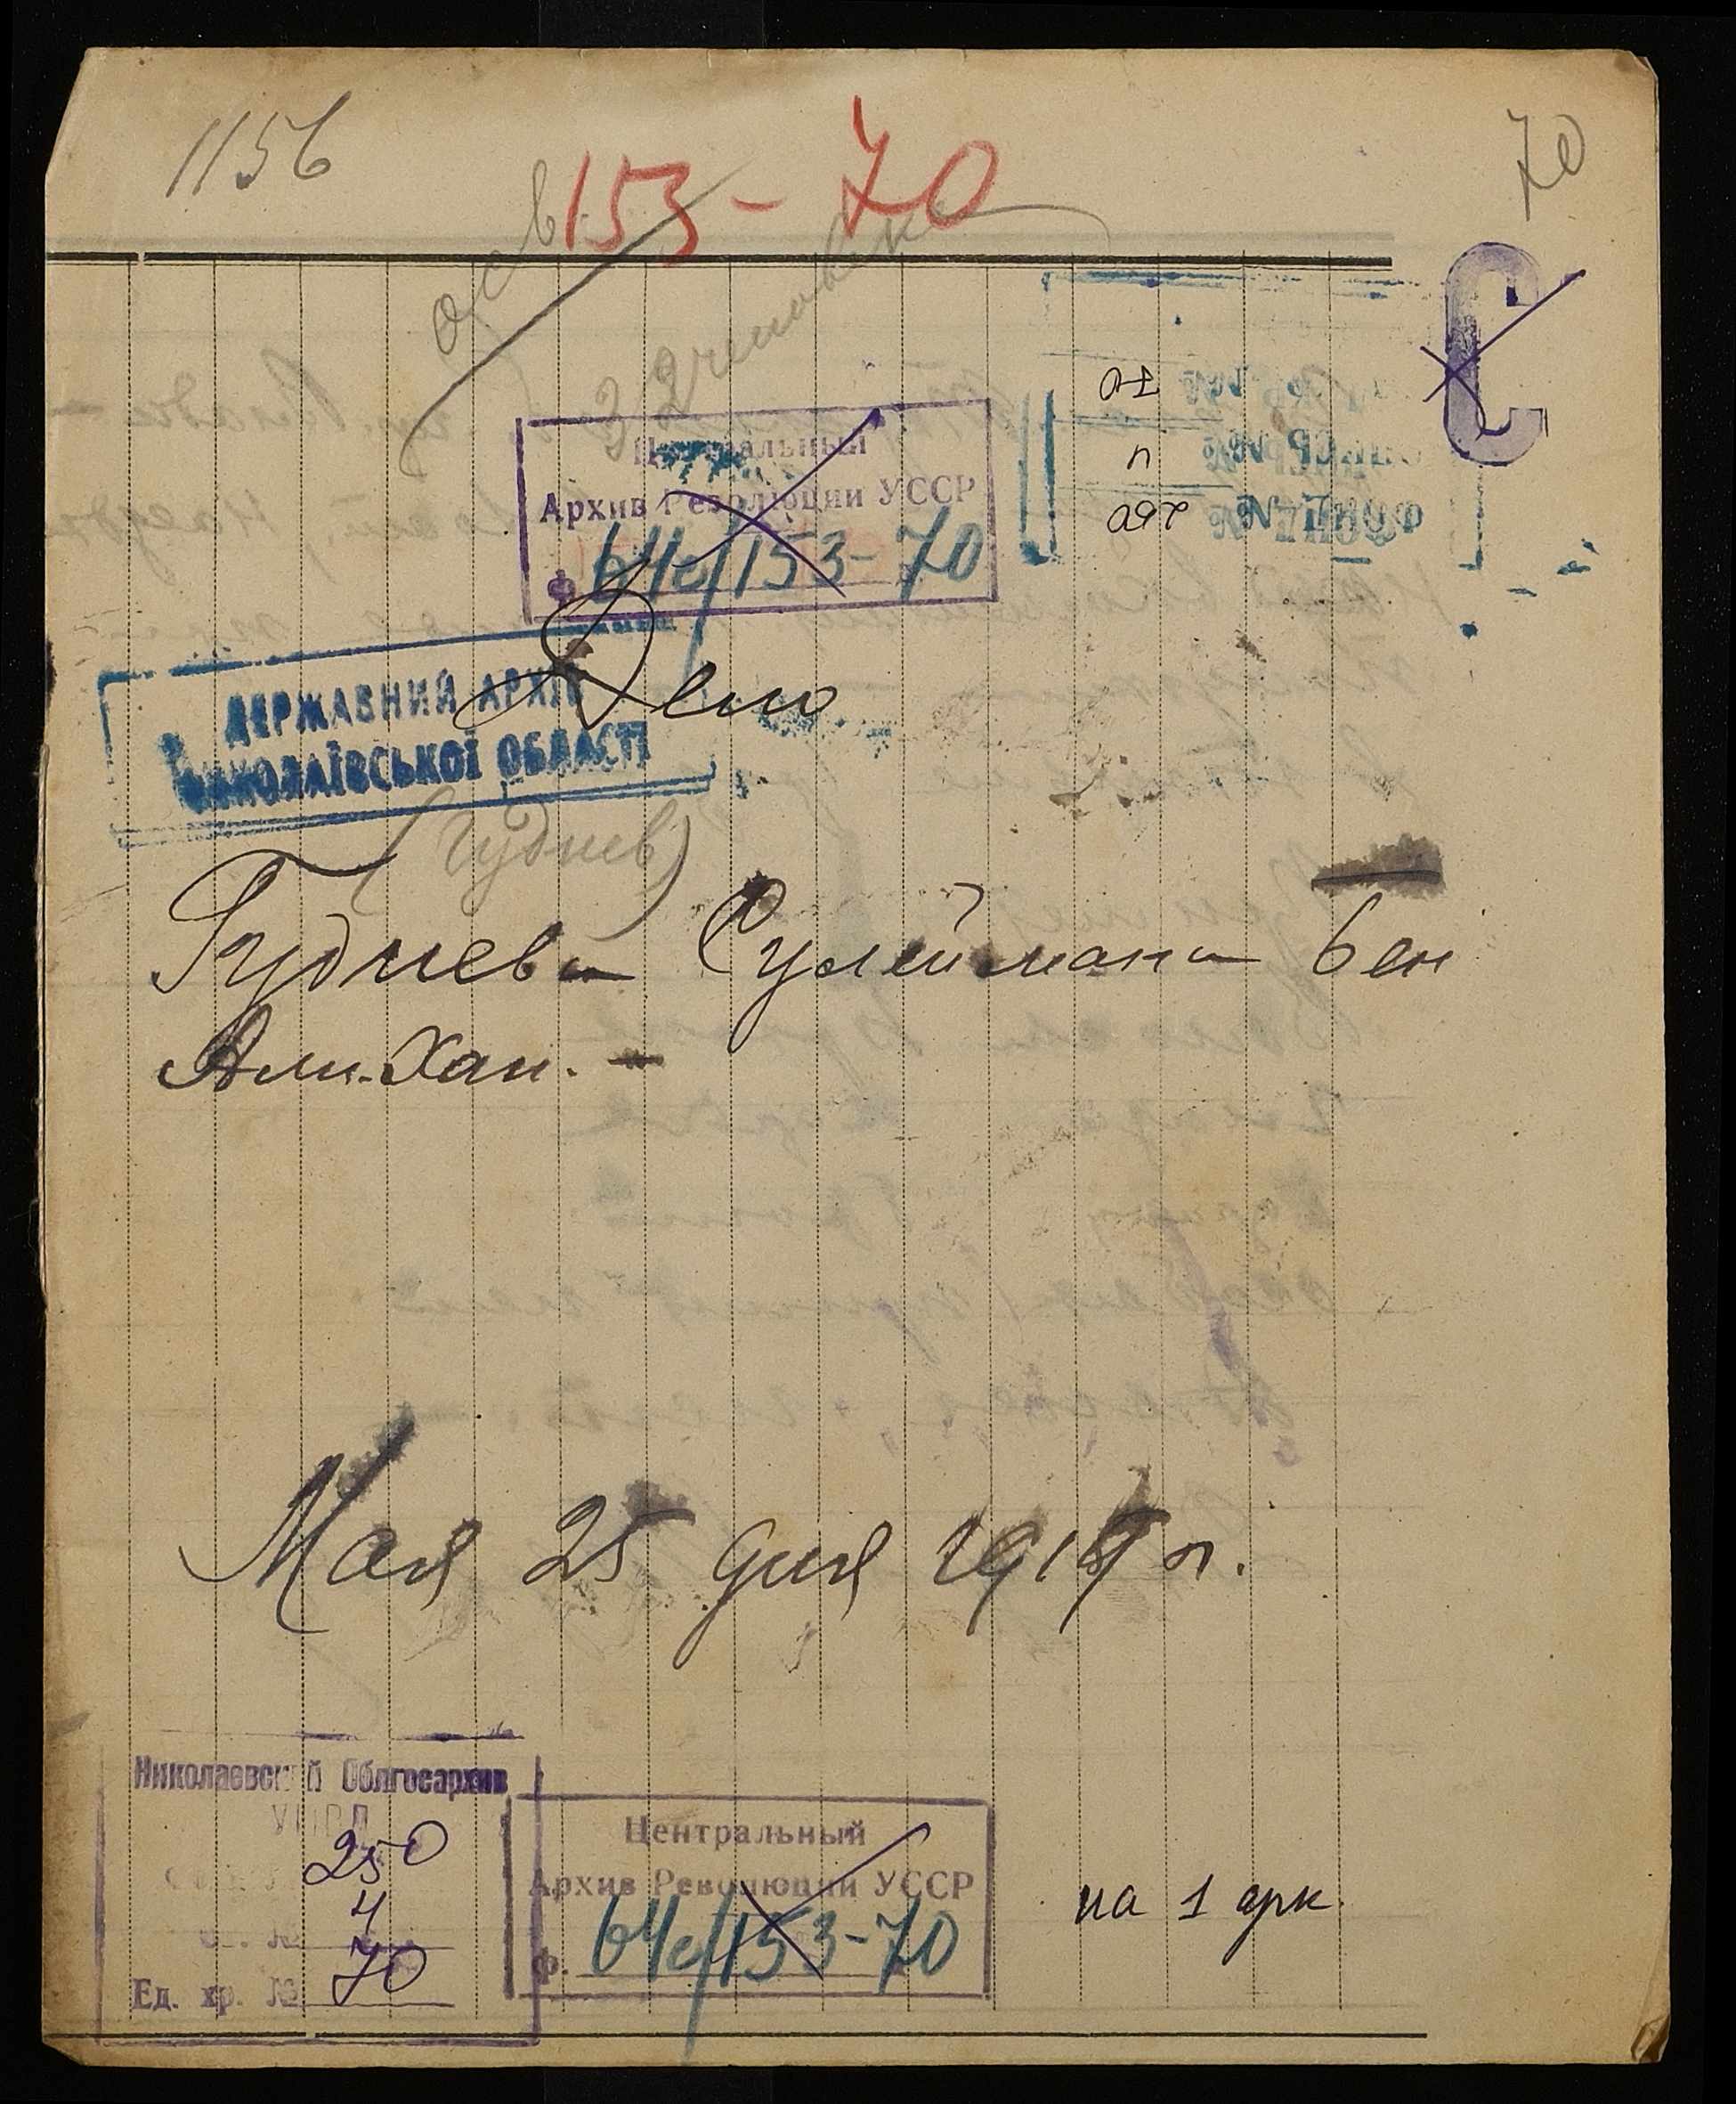 1156
153-70
70
осв
С
Центральный
Архив Революции УССР
Ф. 64с/153-70
ФОНД № 250
ОПИСЬ № 4
70
Дело
ДЕРЖАВНИЙ АРХІВ
МИКОЛАЇВСЬКОЇ ОБЛАСТІ
(Гудиев)
Гудиева Сулеймана бен
Али-Хан.-
Мая 25 дня 1917 г.
Николаевский Облгосархив
УМВД
250
4
Ед. хр. № 70
Центральный
Архив Революции УССР
Ф. 64с/153-70
на 1 арк.